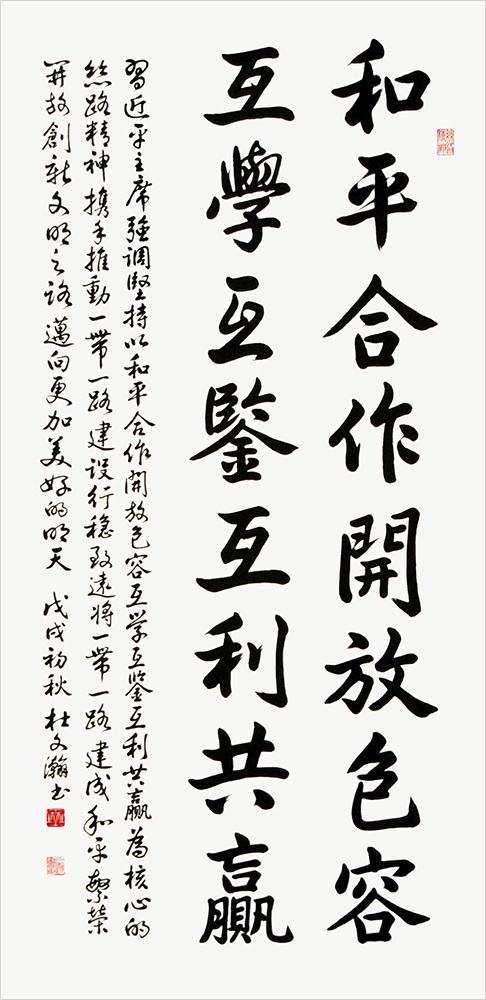 和平合作開放包容
互學互鑒互利共贏
習近平主席强调堅持以和平合作開放包容互学互鉴互利共赢為核心的
丝路精神携手推動一带一路建设行稳致遠将一带一路建成和平繁荣
開放創新文明之路邁向更加美好的明天 戊戌初秋 杜文瀚书